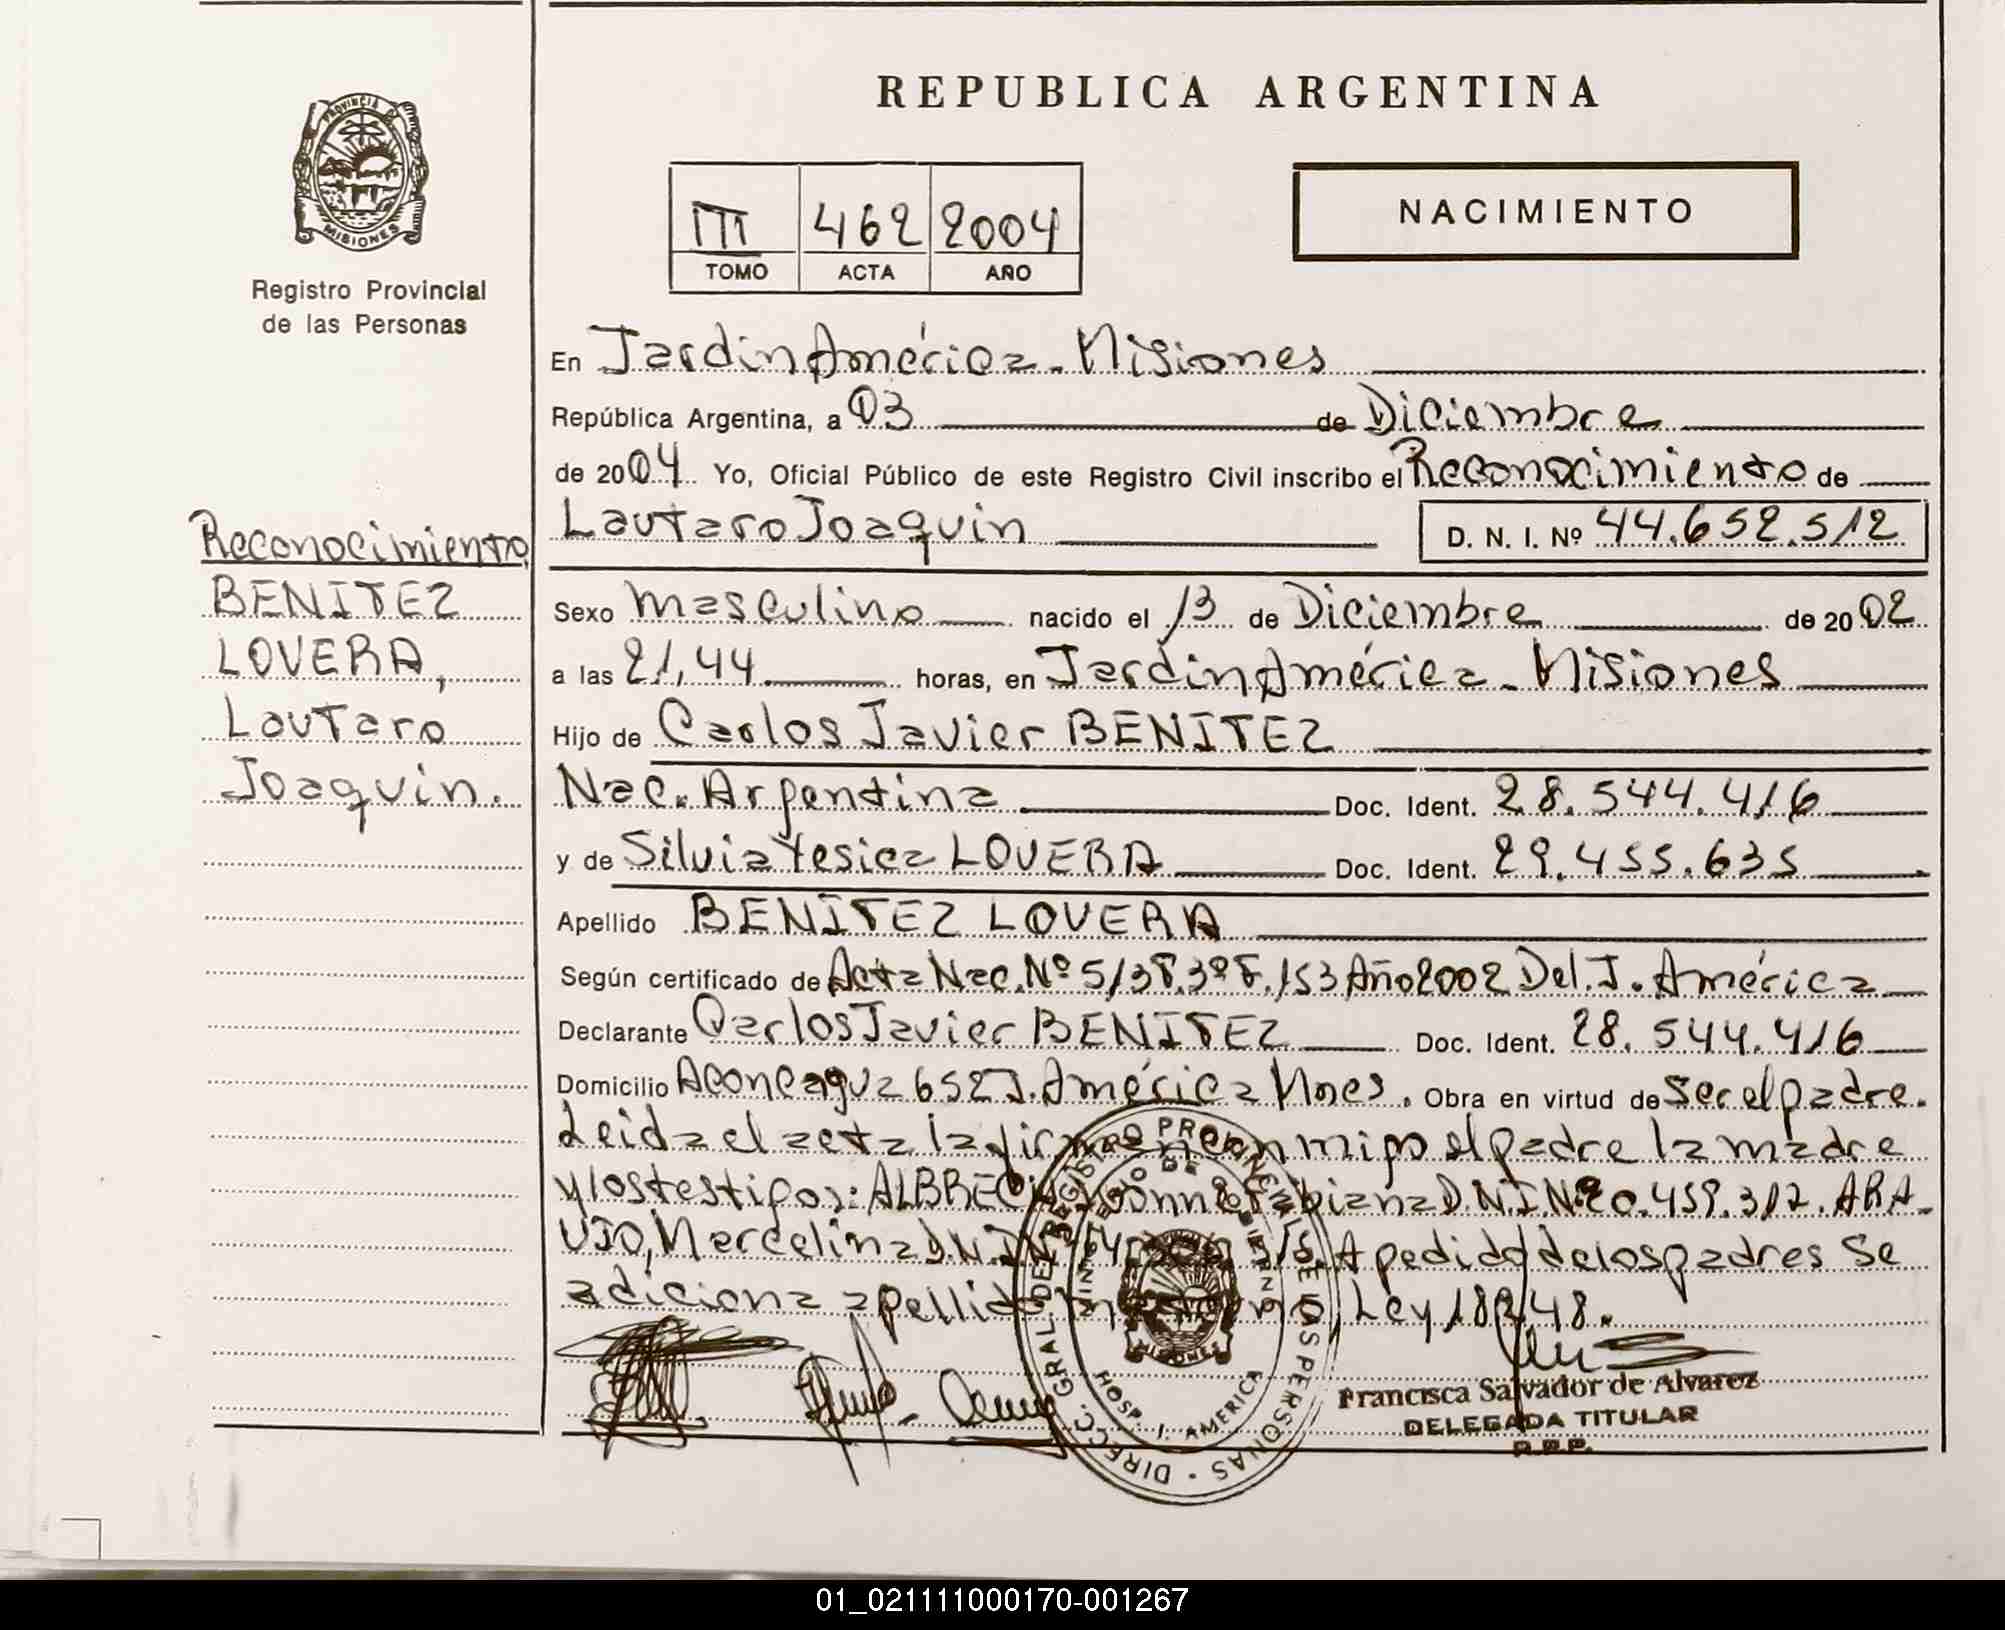 PROVINCIA DE
MISIONES
Registro Provincial
de las Personas
REPUBLICA ARGENTINA
III 462 2004
TOMO ACTA AÑO
NACIMIENTO
En Jardin América - Misiones
República Argentina, a 03 de Diciembre
de 2004 Yo, Oficial Público de este Registro Civil inscribo el Reconocimiento de
Lautaro Joaquin D. N. I. Nº 44.652.512
Reconocimiento
BENITEZ
LOVERA,
Lautaro
Joaquin.
Sexo masculino nacido el 13 de Diciembre de 2002
a las 21,44 horas, en Jardin América - Misiones
Hijo de Carlos Javier BENITEZ
Nac. Argentina Doc. Ident. 28.544.416
y de Silvia Yesica LOVERA Doc. Ident. 29.455.635
Apellido BENITEZ LOVERA
Según certificado de Acta Nac. Nº 5/3T.3ºF.153 Año 2002 Del. J. América
Declarante Carlos Javier BENITEZ Doc. Ident. 28.544.416
Domicilio Aconcagua 652 J. América Mnes. Obra en virtud de ser el padre.
Leida el acta la firman conmigo el padre la madre
y los testigos: D.N.I.Nº 20.459.317. ARA-
UJO, Marcelina D.N.I. A pedido de los padres se
adiciona apellido materno Ley 18248.
DIRECC. GRAL. DE REGISTRO PROVINCIAL DE LAS PERSONAS
MINISTERIO DE GOBIERNO
MISIONES
HOSP. J. AMERICA
Francisca Salvador de Alvarez
DELEGADA TITULAR
R.P.P.
01_021111000170-001267